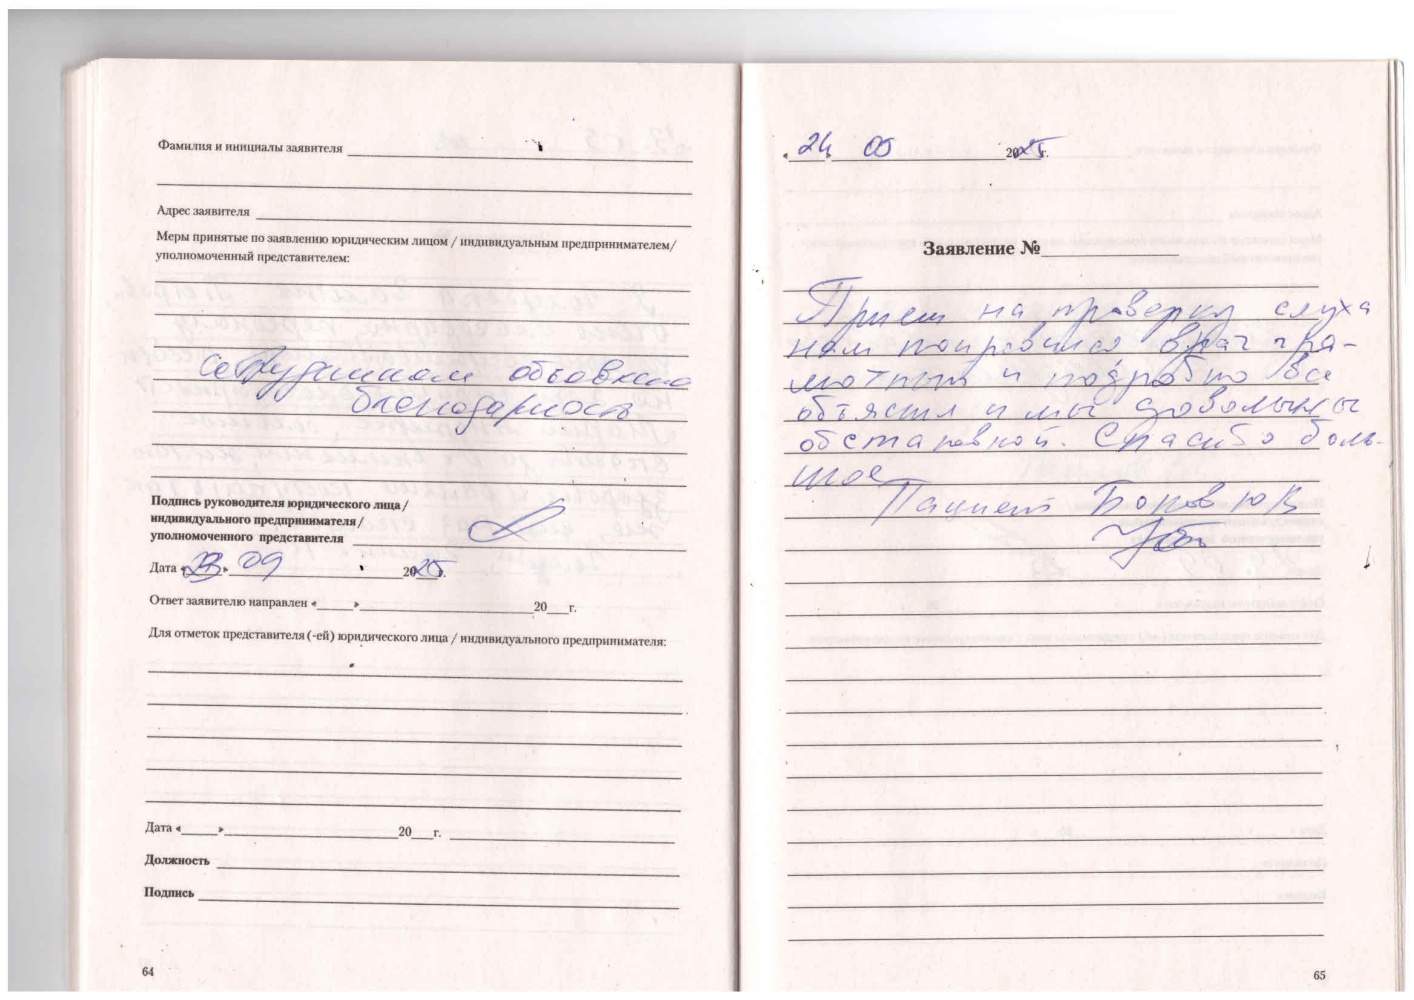 Фамилия и инициалы заявителя
Адрес заявителя
Меры принятые по заявлению юридическим лицом / индивидуальным предпринимателем/
уполномоченный представителем:
объявлена
благодарность
Подпись руководителя юридического лица /
индивидуального предпринимателя /
уполномоченного представителя
Дата « » 09 2025 г.
Ответ заявителю направлен «___»___20___г.
Для отметок представителя (-ей) юридического лица / индивидуального предпринимателя:
Дата «___»___20___г.
Должность
Подпись
64
« 24 05 2025 г.
Заявление №
Прием на проверку слуха
нам понравился врач гра-
мотный и подробно все
объяснил и мы довольны
обстановкой. Спасибо боль-
шое
Пациент
65